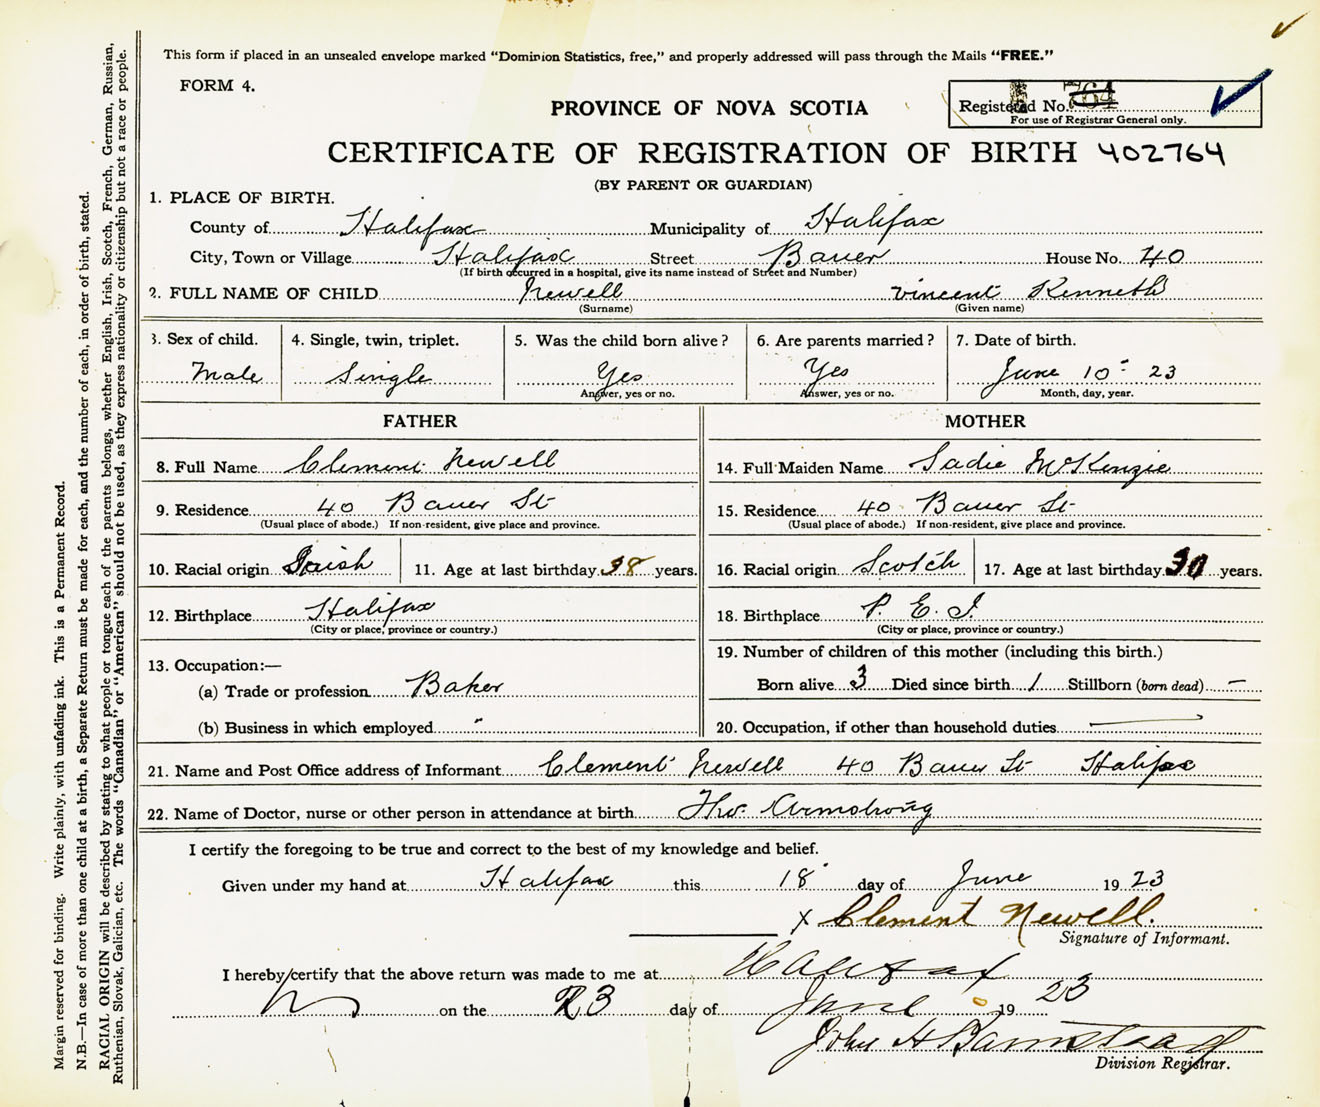 This form if placed in an unsealed envelope marked “Dominion Statistics, free,” and properly addressed will pass through the Mails “FREE.”
FORM 4.
PROVINCE OF NOVA SCOTIA
Registered No. 764
For use of Registrar General only.
CERTIFICATE OF REGISTRATION OF BIRTH 402764
(BY PARENT OR GUARDIAN)
1. PLACE OF BIRTH.
County of Halifax Municipality of Halifax
City, Town or Village Halifax Street Bauer House No. 40
(If birth occurred in a hospital, give its name instead of Street and Number)
2. FULL NAME OF CHILD Newell Vincent Kenneth
(Surname) (Given name)
3. Sex of child. 4. Single, twin, triplet. 5. Was the child born alive? 6. Are parents married? 7. Date of birth.
Male Single Yes Yes June 10 23
Answer, yes or no. Answer, yes or no. Month, day, year.
FATHER
8. Full Name Clement Newell
9. Residence 40 Bauer St
(Usual place of abode.) If non-resident, give place and province.
10. Racial origin Irish 11. Age at last birthday 38 years.
12. Birthplace Halifax
(City or place, province or country.)
13. Occupation:—
(a) Trade or profession Baker
(b) Business in which employed "
MOTHER
14. Full Maiden Name Sadie McKenzie
15. Residence 40 Bauer St
(Usual place of abode.) If non-resident, give place and province.
16. Racial origin Scotch 17. Age at last birthday 30 years.
18. Birthplace P. E. I.
(City or place, province or country.)
19. Number of children of this mother (including this birth.)
Born alive 3 Died since birth 1 Stillborn (born dead) —
20. Occupation, if other than household duties —
21. Name and Post Office address of Informant Clement Newell 40 Bauer St Halifax
22. Name of Doctor, nurse or other person in attendance at birth Tho. Armstrong
I certify the foregoing to be true and correct to the best of my knowledge and belief.
Given under my hand at Halifax this 18 day of June 1923
x Clement Newell.
Signature of Informant.
I hereby certify that the above return was made to me at Halifax
on the 23 day of June 1923
John H Barnstead
Division Registrar.
Margin reserved for binding. Write plainly, with unfading ink. This is a Permanent Record.
N.B.—In case of more than one child at a birth, a Separate Return must be made for each, and the number of each, in order of birth, stated.
RACIAL ORIGIN will be described by stating to what people or tongue each of the parents belongs, whether English, Irish, Scotch, French, German, Russian,
Ruthenian, Slovak, Galician, etc. The words “Canadian” or “American” should not be used, as they express nationality or citizenship but not a race or people.